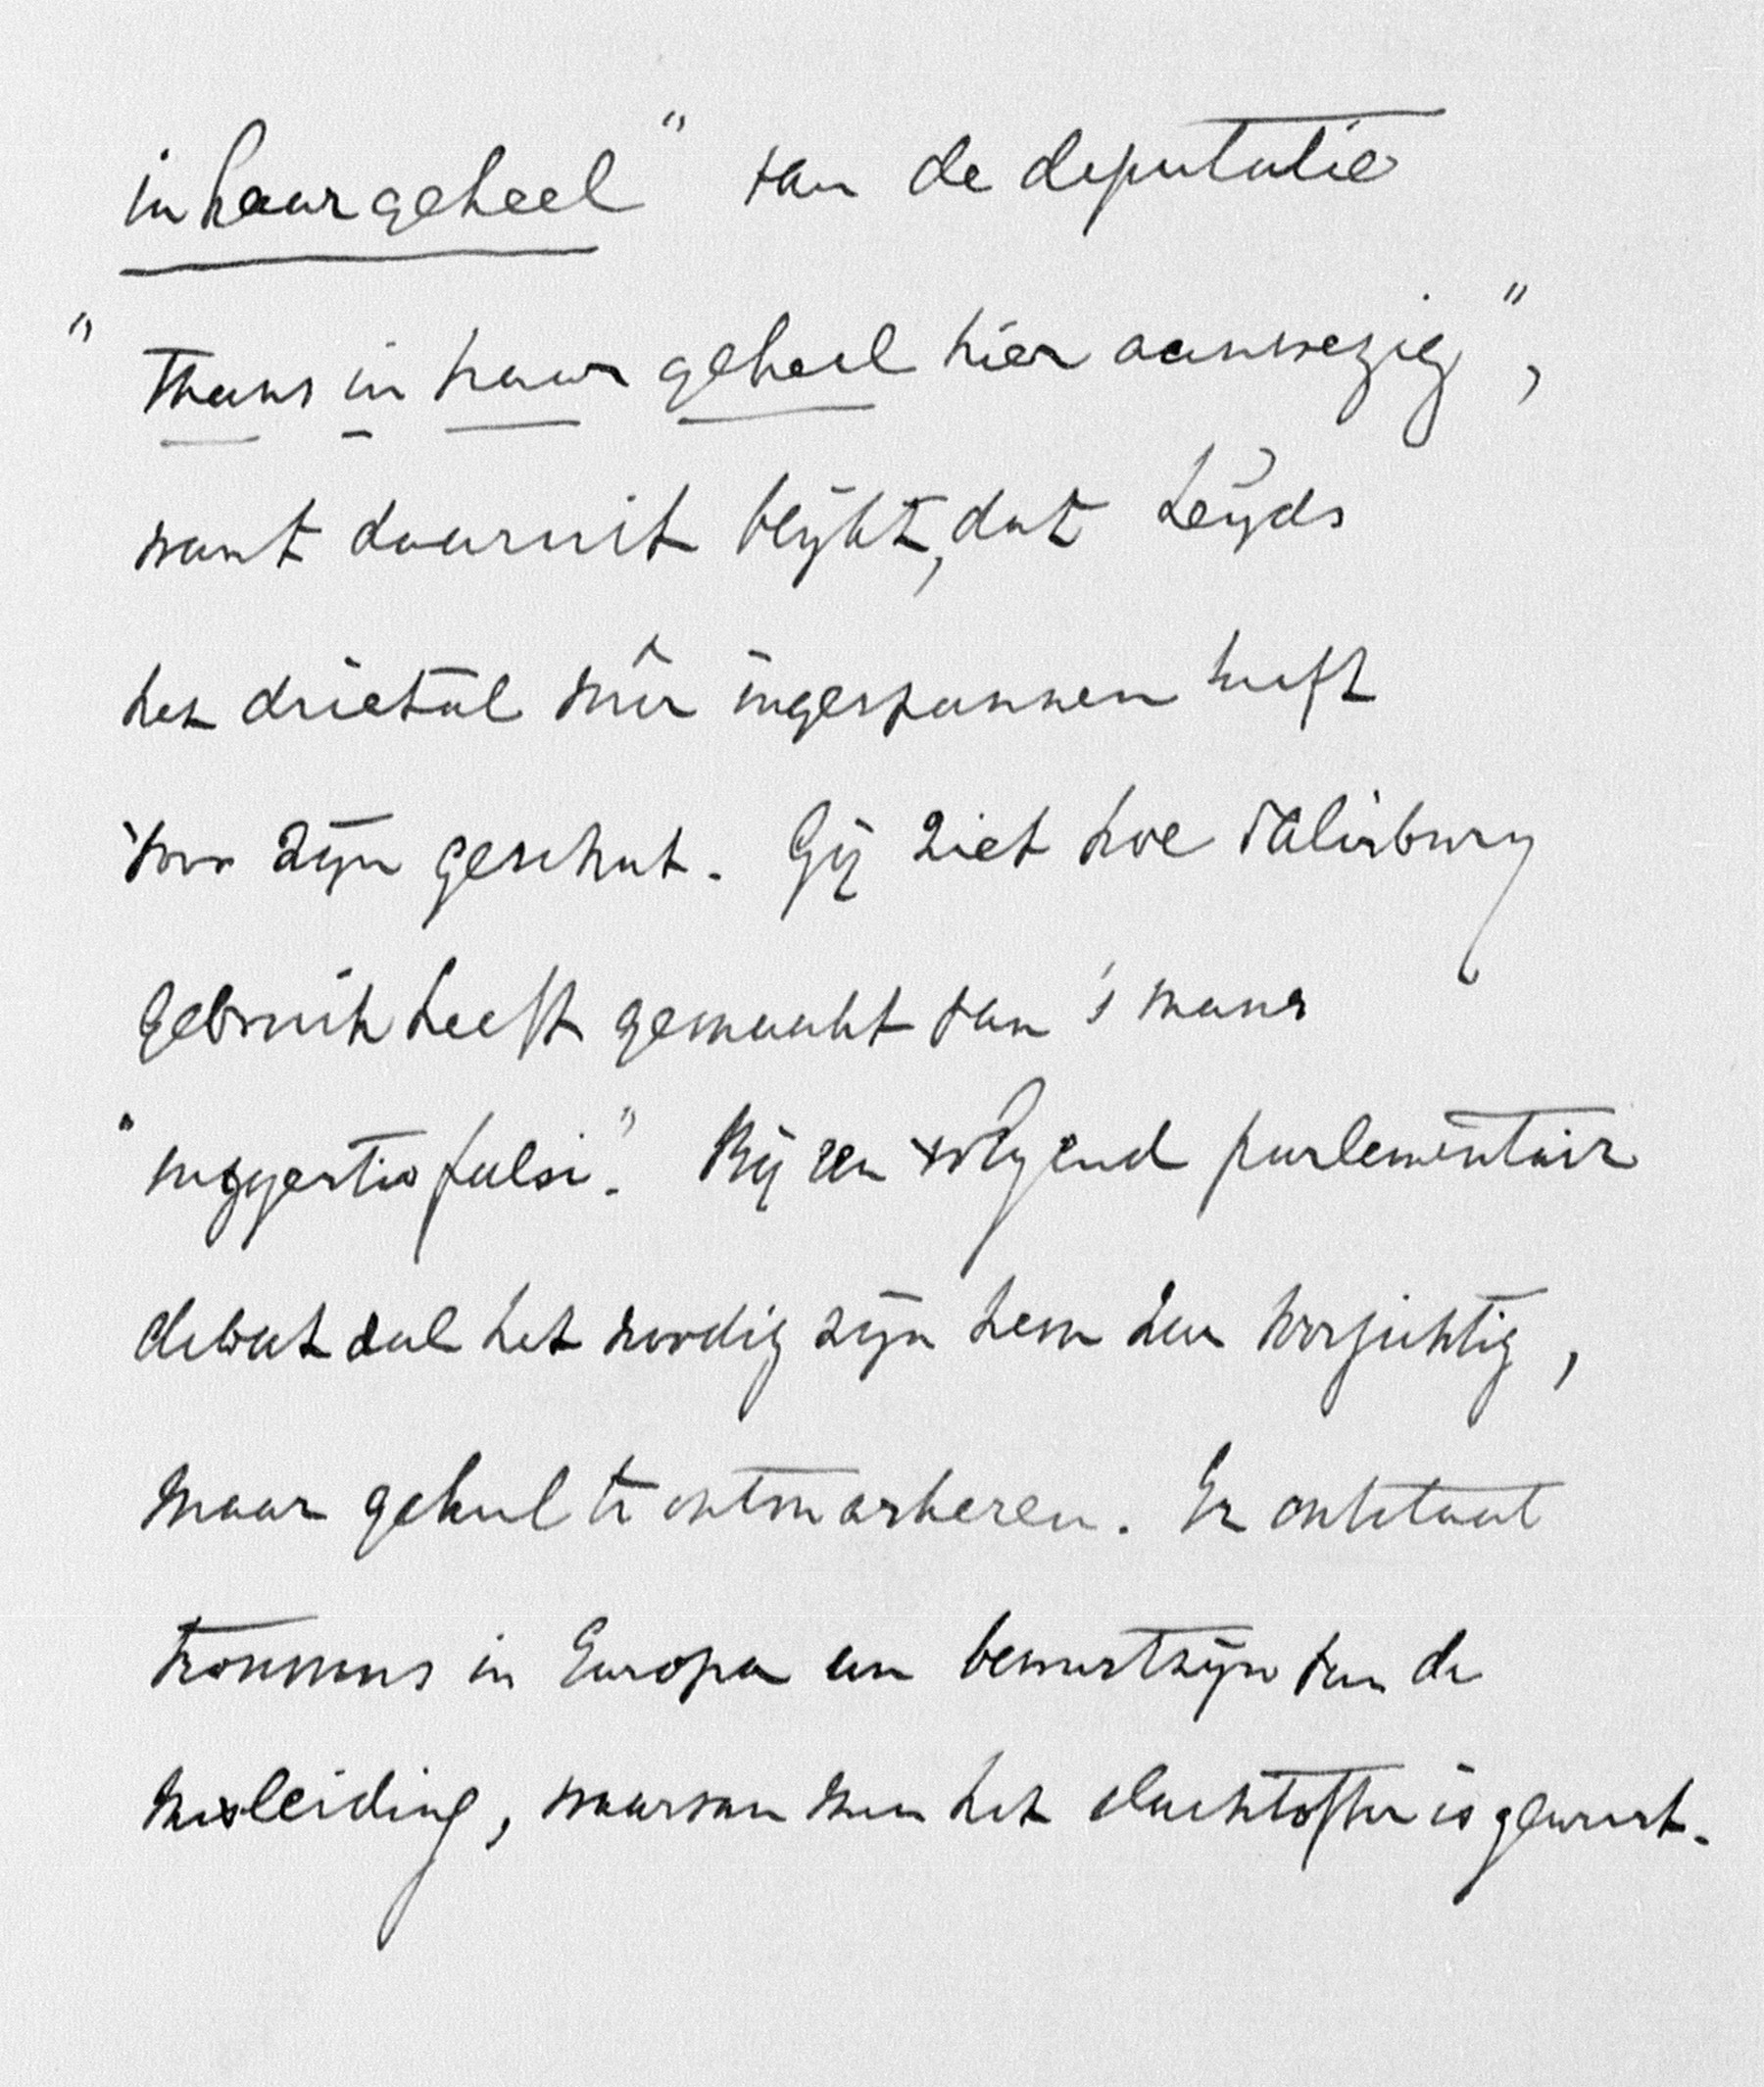 in haar geheel" van de deputatie
"Thans in haar geheel hier aanwezig",
want daaruit blijkt, dat Leyds
het drietal niet ingespannen heeft
voor zijn geschut. Gij ziet hoe Salisbury
gebruik heeft gemaakt van 's mans
"suggestio falsi". Bij een volgend parlementair
debat zal het noodig zijn hem zeer voorzichtig,
maar geheel te ontmaskeren. Er ontstaat
trouwens in Europa een bewustzijn van de
misleiding, waarvan men het slachtoffer is geweest.